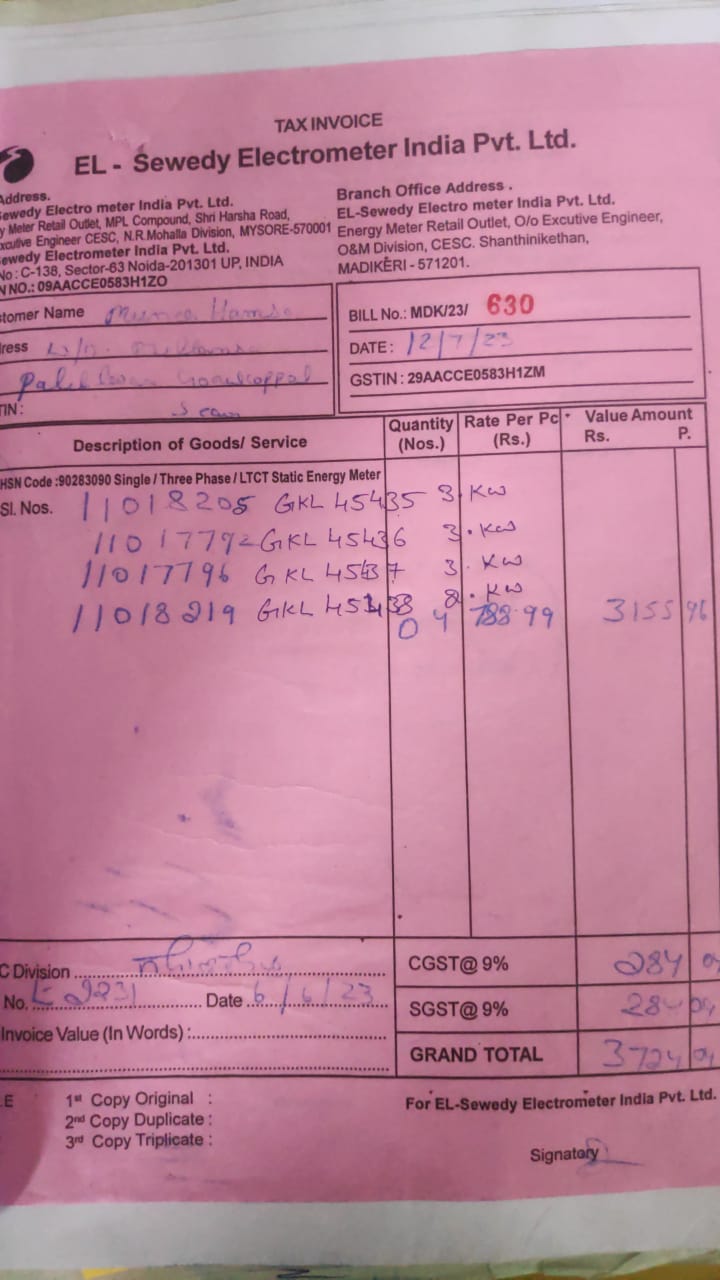 TAX INVOICE
EL - Sewedy Electrometer India Pvt. Ltd.
Address.
Sewedy Electro meter India Pvt. Ltd.
y Meter Retail Outlet, MPL Compound, Shri Harsha Road,
xcutive Engineer CESC, N.R.Mohalla Division, MYSORE-570001
ewedy Electrometer India Pvt. Ltd.
No : C-138, Sector-63 Noida-201301 UP, INDIA
N NO.: 09AACCE0583H1ZO
Branch Office Address .
EL-Sewedy Electro meter India Pvt. Ltd.
Energy Meter Retail Outlet, O/o Excutive Engineer,
O&M Division, CESC. Shanthinikethan,
MADIKERI - 571201.
stomer Name
ress
TIN :
BILL No.: MDK/23/ 630
DATE : 12/7/23
GSTIN : 29AACCE0583H1ZM
Description of Goods/ Service Quantity (Nos.) Rate Per Pc (Rs.) Value Amount Rs. P.
HSN Code :90283090 Single / Three Phase / LTCT Static Energy Meter
Sl. Nos. 11018205 GKL 45435 3. KW
11017792 GKL 45436 3. KW
11017796 GKL 45437 3. KW
11018219 GKL 45438 2. KW
04 788.99 3155 96
C Division
No. E 2231 Date 6/6/23
Invoice Value (In Words) :
CGST@ 9% 284 04
SGST@ 9% 284 04
GRAND TOTAL 3724 04
E 1st Copy Original :
2nd Copy Duplicate :
3rd Copy Triplicate :
For EL-Sewedy Electrometer India Pvt. Ltd.
Signatory